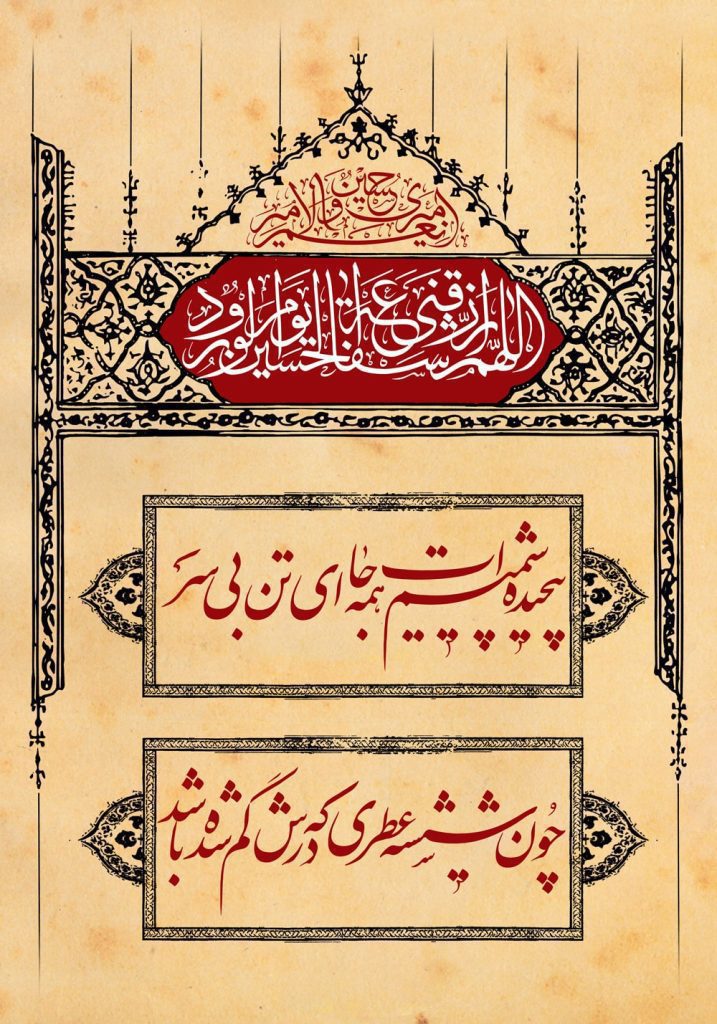 امیری حسین و نعم الامیر
اللهم ارزقنی شفاعة الحسین یوم الورود
پیچیده شمیم ات همه جا ای تن بی سر
چون شیشه عطری که درش گم شده باشد